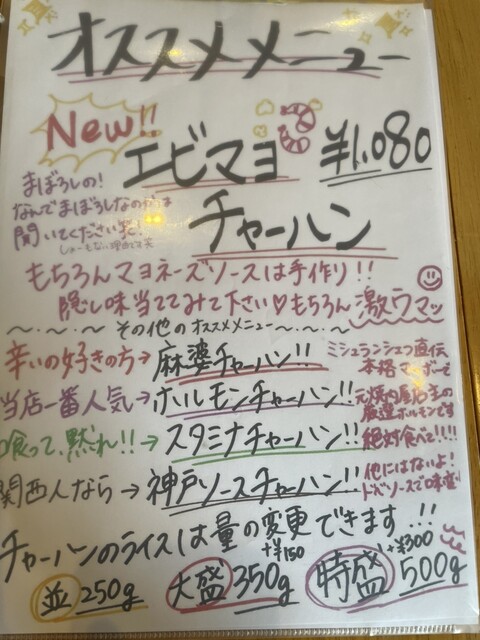 オススメメニュー
New!!
エビマヨ ¥1,080
チャーハン
まぼろしの!
なんでまぼろしなのかは
聞いてください笑!
しょーもない理由です笑
もちろんマヨネーズソースは手作り!!
隠し味当ててみて下さい♡もちろん激ウマッ
〜・〜・〜その他のオススメメニュー〜・〜・〜
辛いの好きの方→麻婆チャーハン!!
ミシュランシェフ直伝
本格マーボーで
当店一番人気→ホルモンチャーハン!!
元焼肉屋店主の
厳選ホルモンです
喰って、黙れ!!→スタミナチャーハン!!
絶対食べて!!!!
関西人なら→神戸ソースチャーハン!!
他にはないよ!
ドバソースで
チャーハンのライスは量の変更できます!!!
並 250g
+¥150
大盛 350g
+¥300
特盛 500g